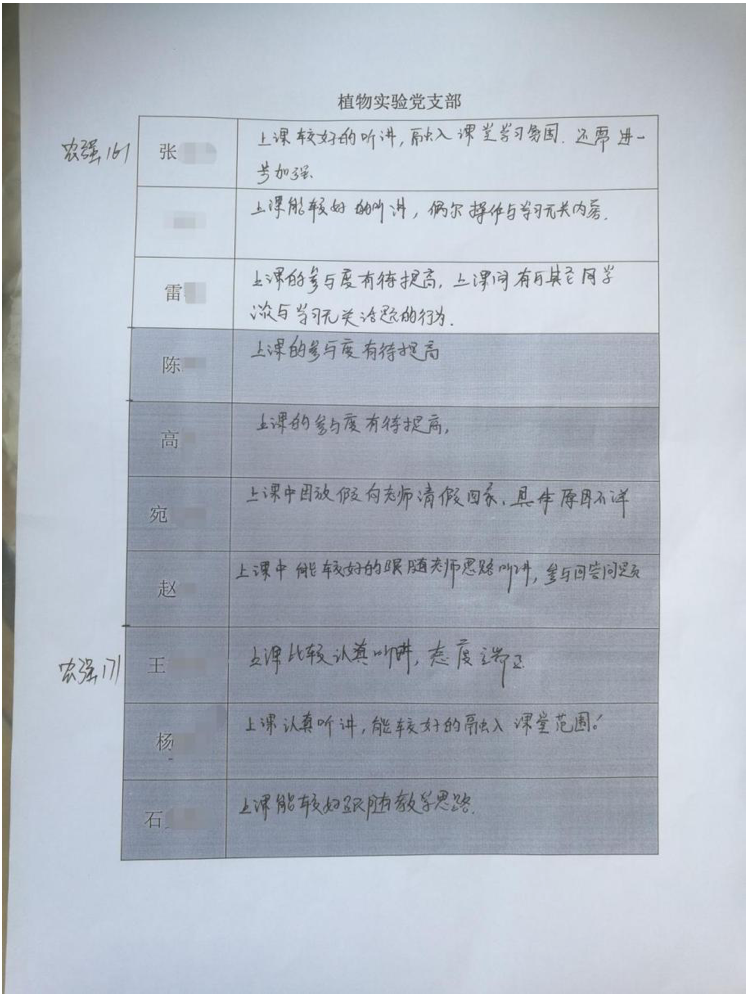 植物实验党支部
农强161
张
上课较好的听讲,融入课堂学习氛围.还需进一
步加强.
上课能较好的听讲,偶尔操作与学习无关内容.
雷
上课的参与度有待提高,上课间有与其它同学
谈与学习无关话题的行为.
陈
上课的参与度有待提高
高
上课的参与度有待提高,
宛
上课中因放假向老师请假回家,具体原因不详
赵
上课中能较好的跟随老师思路听讲,参与回答问题
农强171
王
上课比较认真听讲,态度端正
杨
上课认真听讲,能较好的融入课堂范围!
石
上课能较好跟随教学思路.